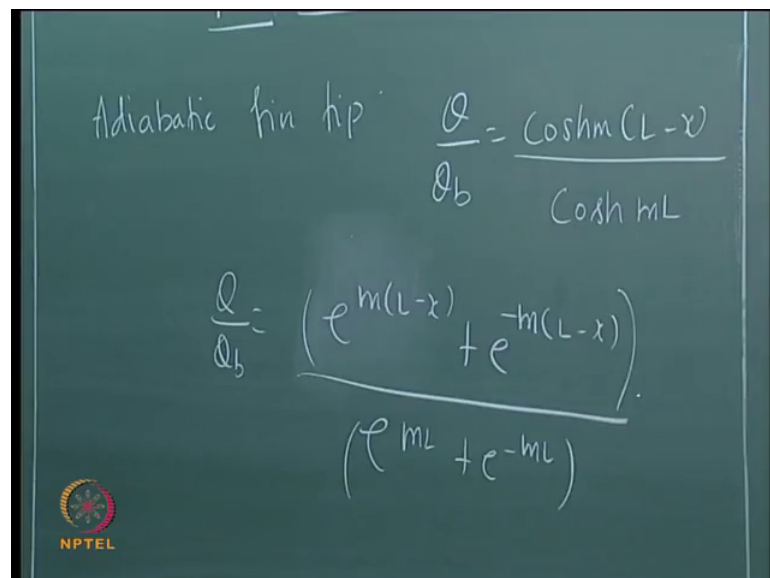 Adiabatic fin tip θ/θb = Coshm(L-x)/Cosh mL
θ/θb = (e^m(L-x) + e^-m(L-x))/(e^mL + e^-mL)
NPTEL